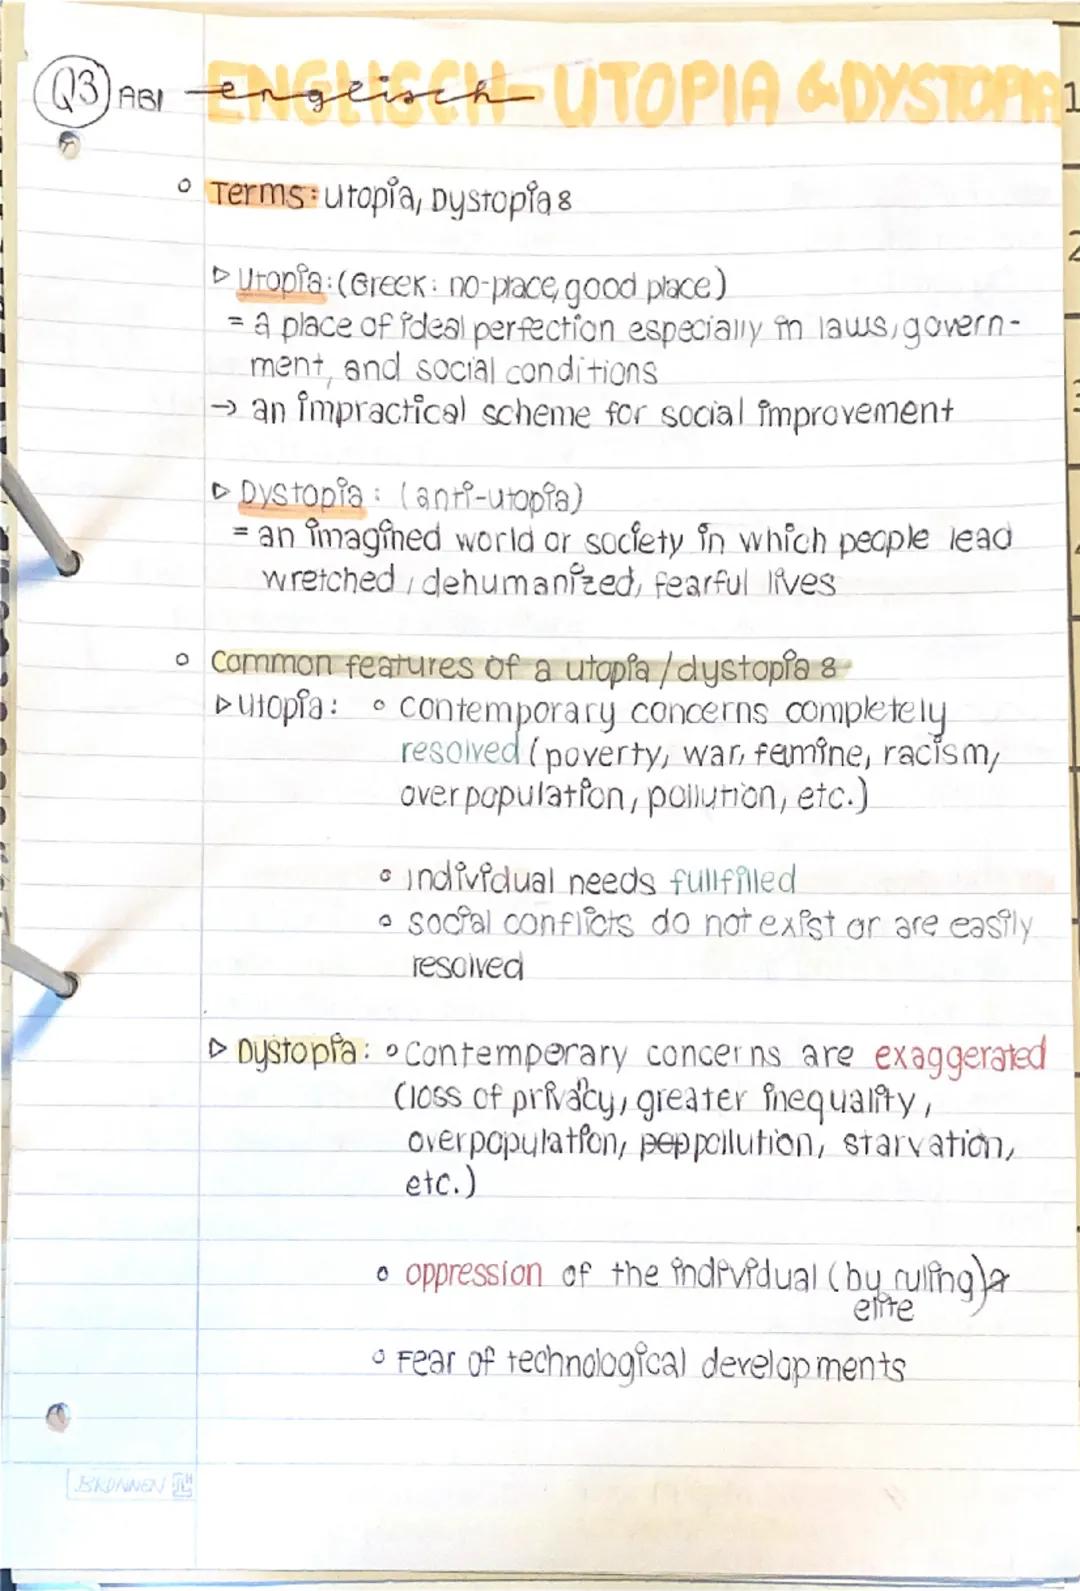 Q3 ABI englisch ENGLISCH-UTOPIA & DYSTOPIA
Terms: Utopia, Dystopia:
Utopia: (Greek: no-place, good place)
= a place of ideal perfection especially in laws, govern-
ment, and social conditions
→ an impractical scheme for social improvement
Dystopia: (anti-utopia)
= an imagined world or society in which people lead
wretched, dehumanized, fearful lives
Common features of a utopia/dystopia:
Utopia: ∘ contemporary concerns completely
resolved (poverty, war, famine, racism,
overpopulation, pollution, etc.)
∘ individual needs fullfilled
∘ social conflicts do not exist or are easily
resolved
Dystopia: ∘ Contemporary concerns are exaggerated
(loss of privacy, greater inequality,
overpopulation, pollution, starvation,
etc.)
∘ oppression of the individual (by ruling)
elite
∘ Fear of technological developments
BRUNNEN
1
2